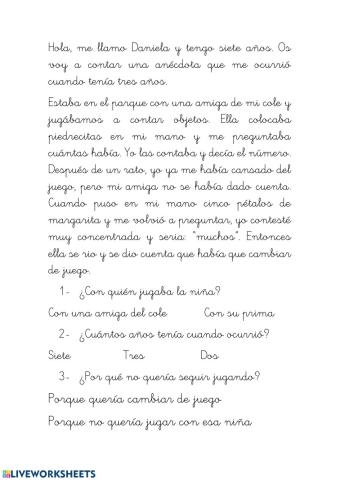 Hola, me llamo Daniela y tengo siete años. Os
voy a contar una anécdota que me ocurrió
cuando tenía tres años.
Estaba en el parque con una amiga de mi cole y
jugábamos a contar objetos. Ella colocaba
piedrecitas en mi mano y me preguntaba
cuántas había. Yo las contaba y decía el número.
Después de un rato, yo ya me había cansado del
juego, pero mi amiga no se había dado cuenta.
Cuando puso en mi mano cinco pétalos de
margarita y me volvió a preguntar, yo contesté
muy concentrada y seria: "muchos". Entonces
ella se rio y se dio cuenta que había que cambiar
de juego.
1- ¿Con quién jugaba la niña?
Con una amiga del cole Con su prima
2- ¿Cuántos años tenía cuando ocurrió?
Siete Tres Dos
3- ¿Por qué no quería seguir jugando?
Porque quería cambiar de juego
Porque no quería jugar con esa niña
LIVEWORKSHEETS